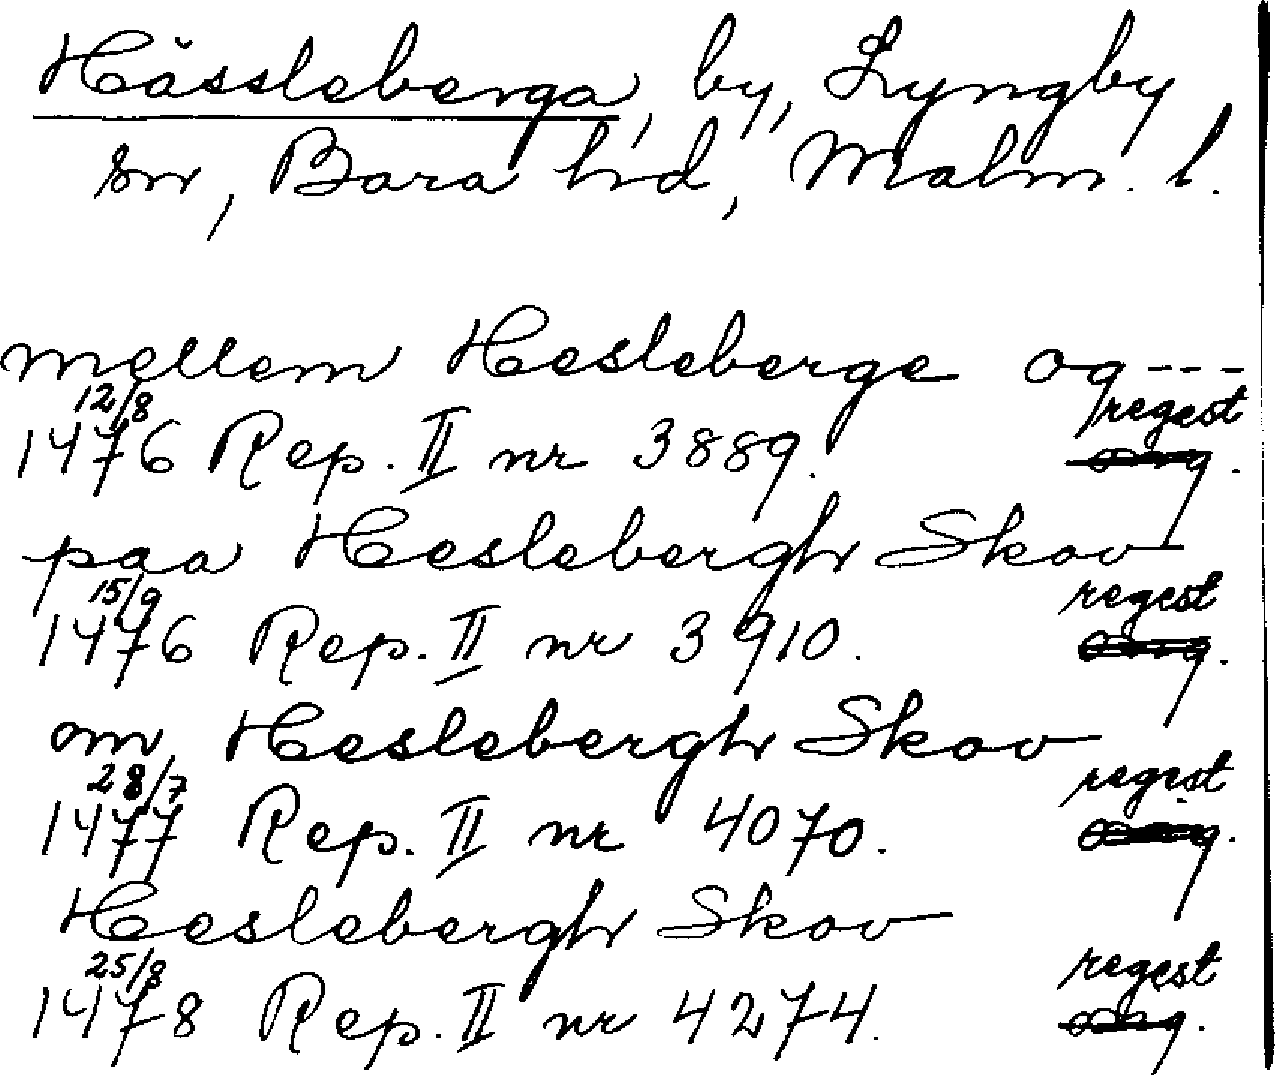 Hässleberga, by, Lyngby
sn, Bara hd, Malm. l.
mellem Hesleberge og---
12/8 regest
1476 Rep. II nr 3889. org.
paa Heslebergh Skov
15/9 regest
1476 Rep. II nr 3910. org.
om Heslebergh Skov
28/7 regest
1477 Rep. II nr 4070. org.
Heslebergh Skov
25/8 regest
1478 Rep. II nr 4274. org.